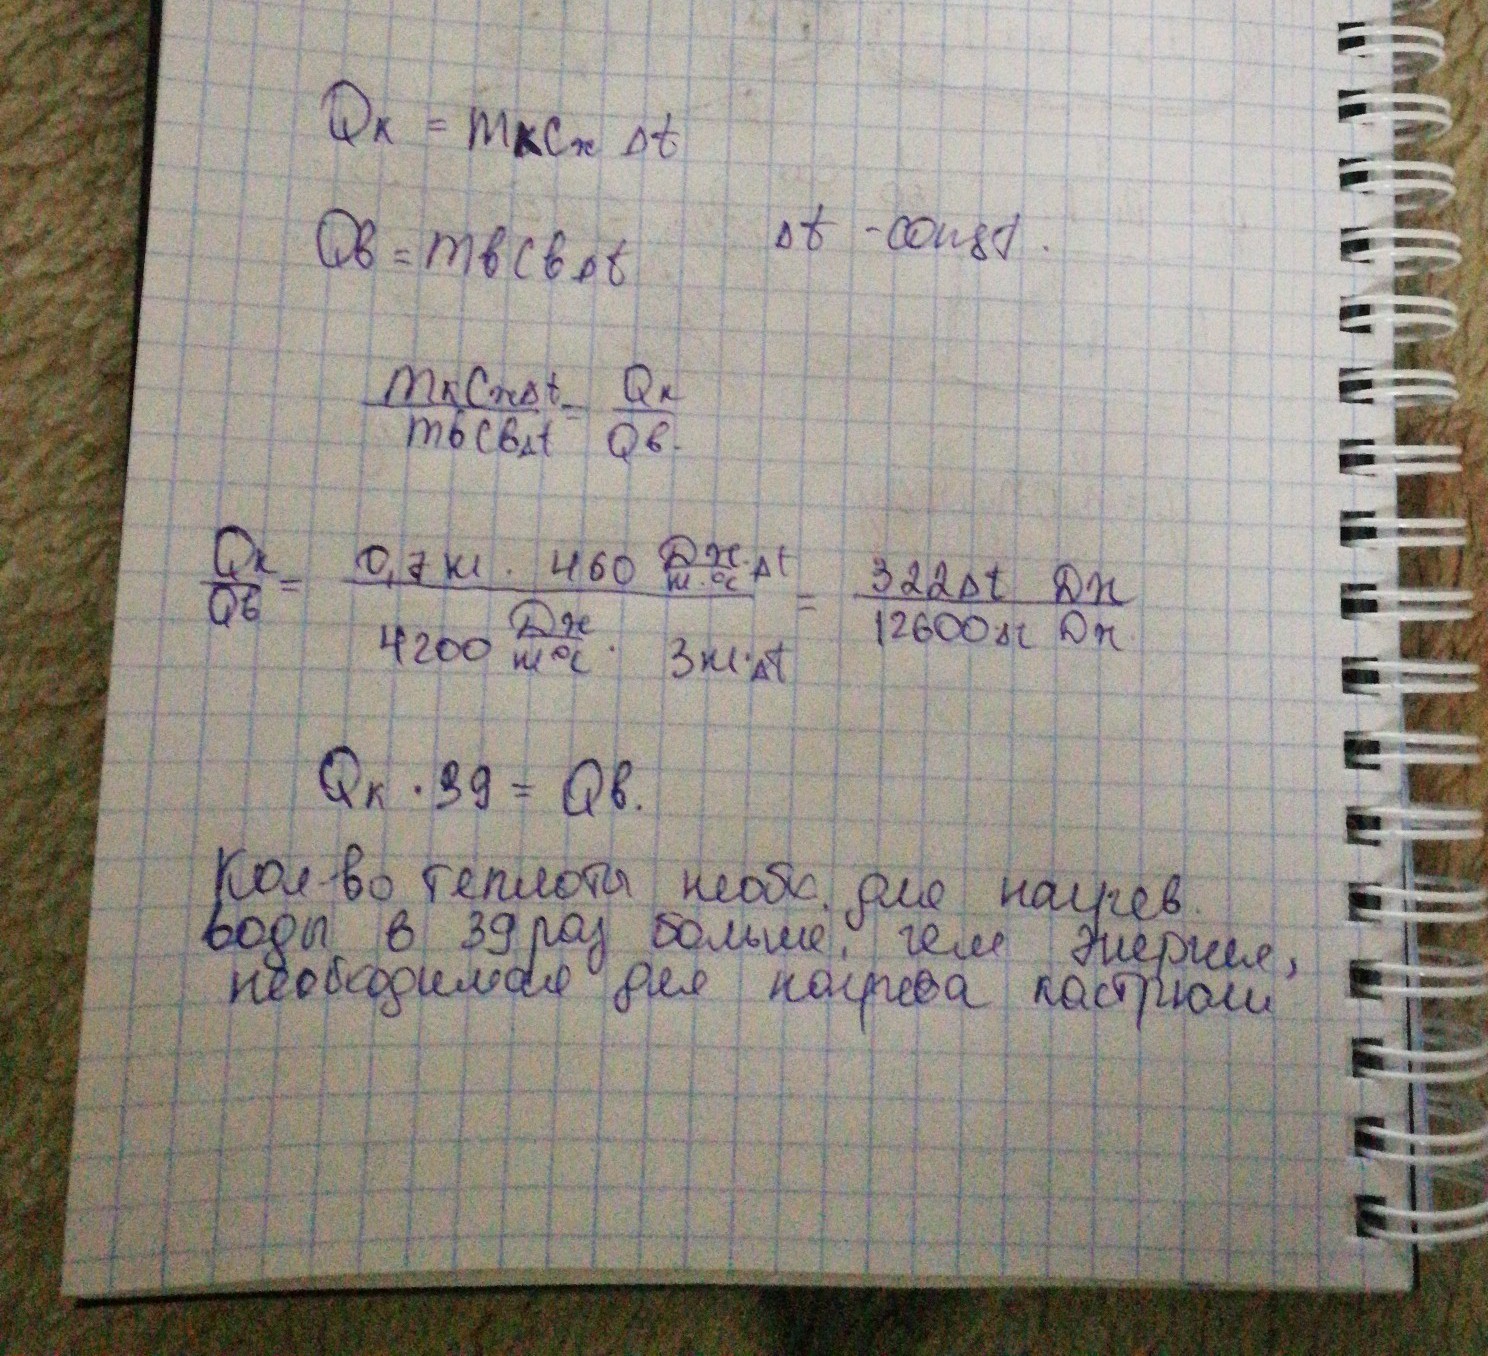 Qк = mкcж Δt
Qв = mвcвΔt Δt - const.
mкcжΔt / mвcвΔt = Qк / Qв.
Qк / Qв = 0,7 кг · 460 Дж / кг·°С · Δt / 4200 Дж / кг°С · 3 кг·Δt = 322Δt Дж / 12600Δt Дж
Qк · 39 = Qв.
Кол-во теплоты необх. для нагрев.
воды в 39 раз больше, чем энергия,
необходимая для нагрева кастрюли